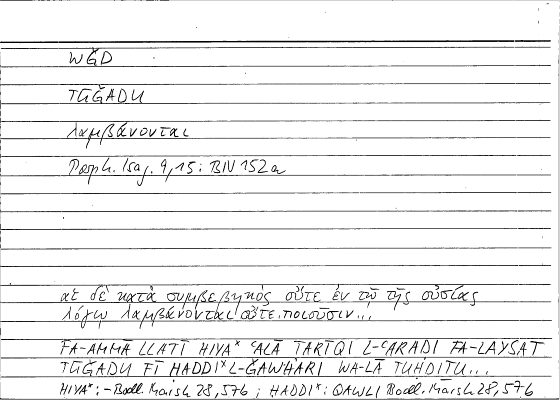 WǦD
TŪǦADU
λαμβάνονται
Porph. Isag. 9,15: BIV 152a
αἱ δὲ κατὰ συμβεβηκός οὔτε ἐν τῷ τῆς οὐσίας
λόγῳ λαμβάνονται οὔτε ποιοῦσιν...
FA-AMMĀ LLATĪ HIYAˣ ʿALĀ ṬARĪQI L-ʿARAḌI FA-LAYSAT
TŪǦADU FĪ ḤADDIˣ L-ǦAWHARI WA-LĀ TUḤDIṮU...
HIYAˣ: – Bodl. Marsh 28,57b ; ḤADDIˣ: QAWLI Bodl. Marsh 28,57b